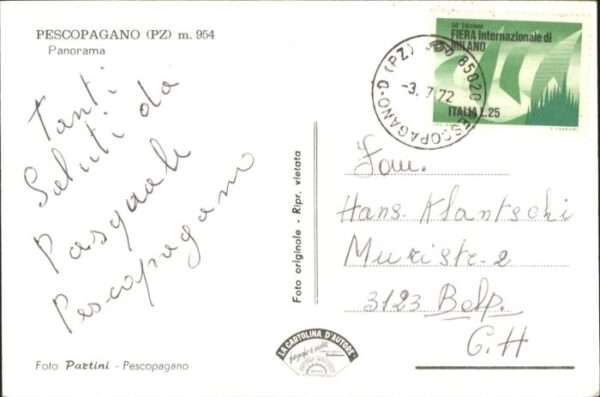 PESCOPAGANO (PZ) m. 954
Panorama
Tanti
Saluti da
Pasquale
Pescopagano
Foto Partini - Pescopagano
Foto originale - Ripr. vietata
LA CARTOLINA D'AUTORE
50ª Edizione
FIERA Internazionale di
MILANO
ITALIA L.25
85020 PESCOPAGANO-D (PZ)
-3.7.72
Fam.
Hans Klantschi
Muristr. 2
3123 Belp.
C.H